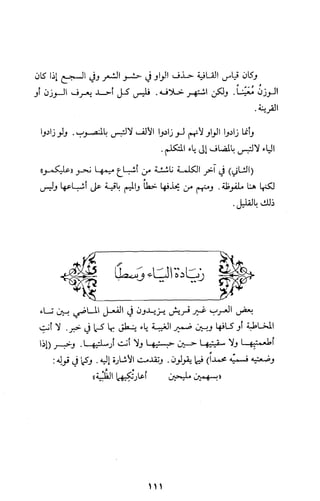 وكان قياس القافية حذف الواو في حشو الشعر وفي السجع إذا كان
الوزن مُعَيَّناً. ولكن اشتهر خلافه. فليس كل أحد يعرف الوزن أو
القرينة.
وإنما زادوا الواو لأنهم لو زادوا الألف لالتبس بالمنصوب. ولو زادوا
الياء لالتبس بالمضاف إلى ياء المتكلم.
(الثاني) في آخر الكلمة ناشئة من أشباع ميمها نحو «عليكمو»
لكنها هنا ملفوظة. ومنهم من يحذفها خطأ والميم باقية على أشباعها وليس
ذلك بالقليل.
زيادة الياء وسطاً
بعض العرب غير قريش يزيدون في الفعل الماضي بين تاء
المخاطبة أو كافها وبين ضمير الغيبة ياء ينطق بها كما في خبر. لا أنتِ
أطعمتيها ولا سقيتيها حين حبستيها ولا أنتِ أرسلتيها. وخبر (إذا
وضعتيه فسميّه محمداً) فيما يقولون. وتقدمت الأشارة إليه. وكما في قوله:
«بسهمين مليحين أعارتكيهما الظبية»
١١١